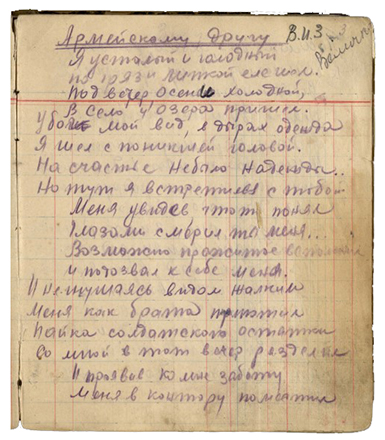 Армейскому другу В.И.З
Я усталый и голодный
по грязи липкой еле шел.
Под вечер осени холодной,
В село у озера пришел.
Убог мой вид, в дырах одежда
Я шел с поникшей головой.
На счастье небыло надежды..
Но тут я встретился с тобой
Меня увидев тот понял
Глазами смерил ты меня...
Возможно прожитое вспомнил
и позвал к себе меня.
И негнушаясь видом жалким
Меня как брата приютил
Пайка солдатского остатки
Со мной в тот вечер разделил
И проявив ко мне заботу
Меня в контору поместил